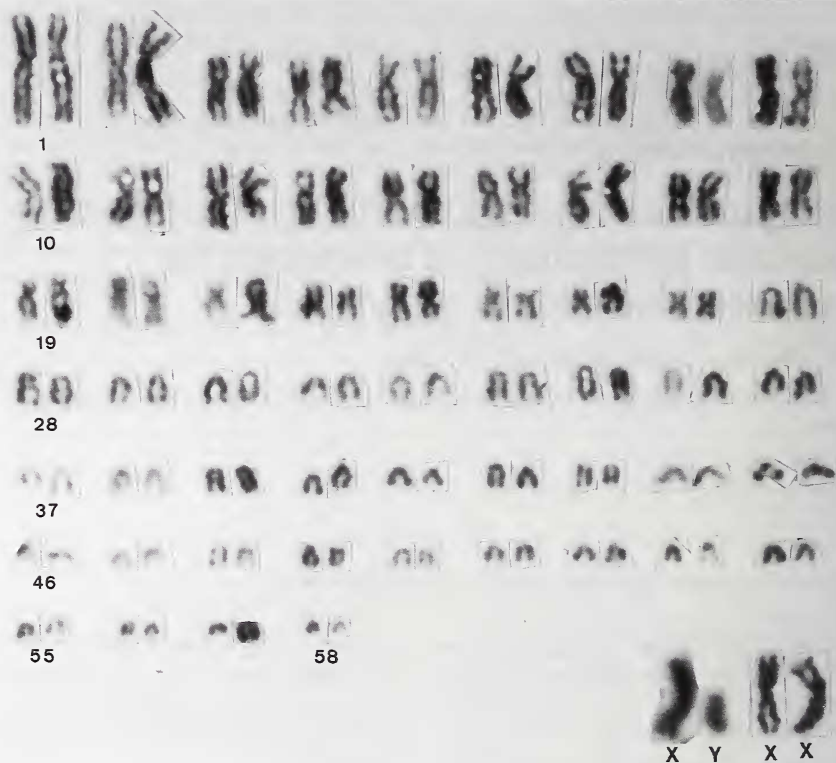 1
10
19
28
37
46
55 58
X Y X X